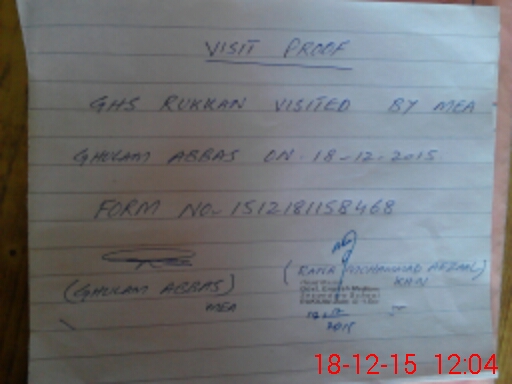 VISIT PROOF
GHS RUKKAN VISITED BY MEA
GHULAM ABBAS ON. 18-12-2015
FORM NO- 1512181158468
(GHULAM ABBAS)
MEA
MOHAMMAD AFZAAL)
KHAN
2015
18-12-15 12:04